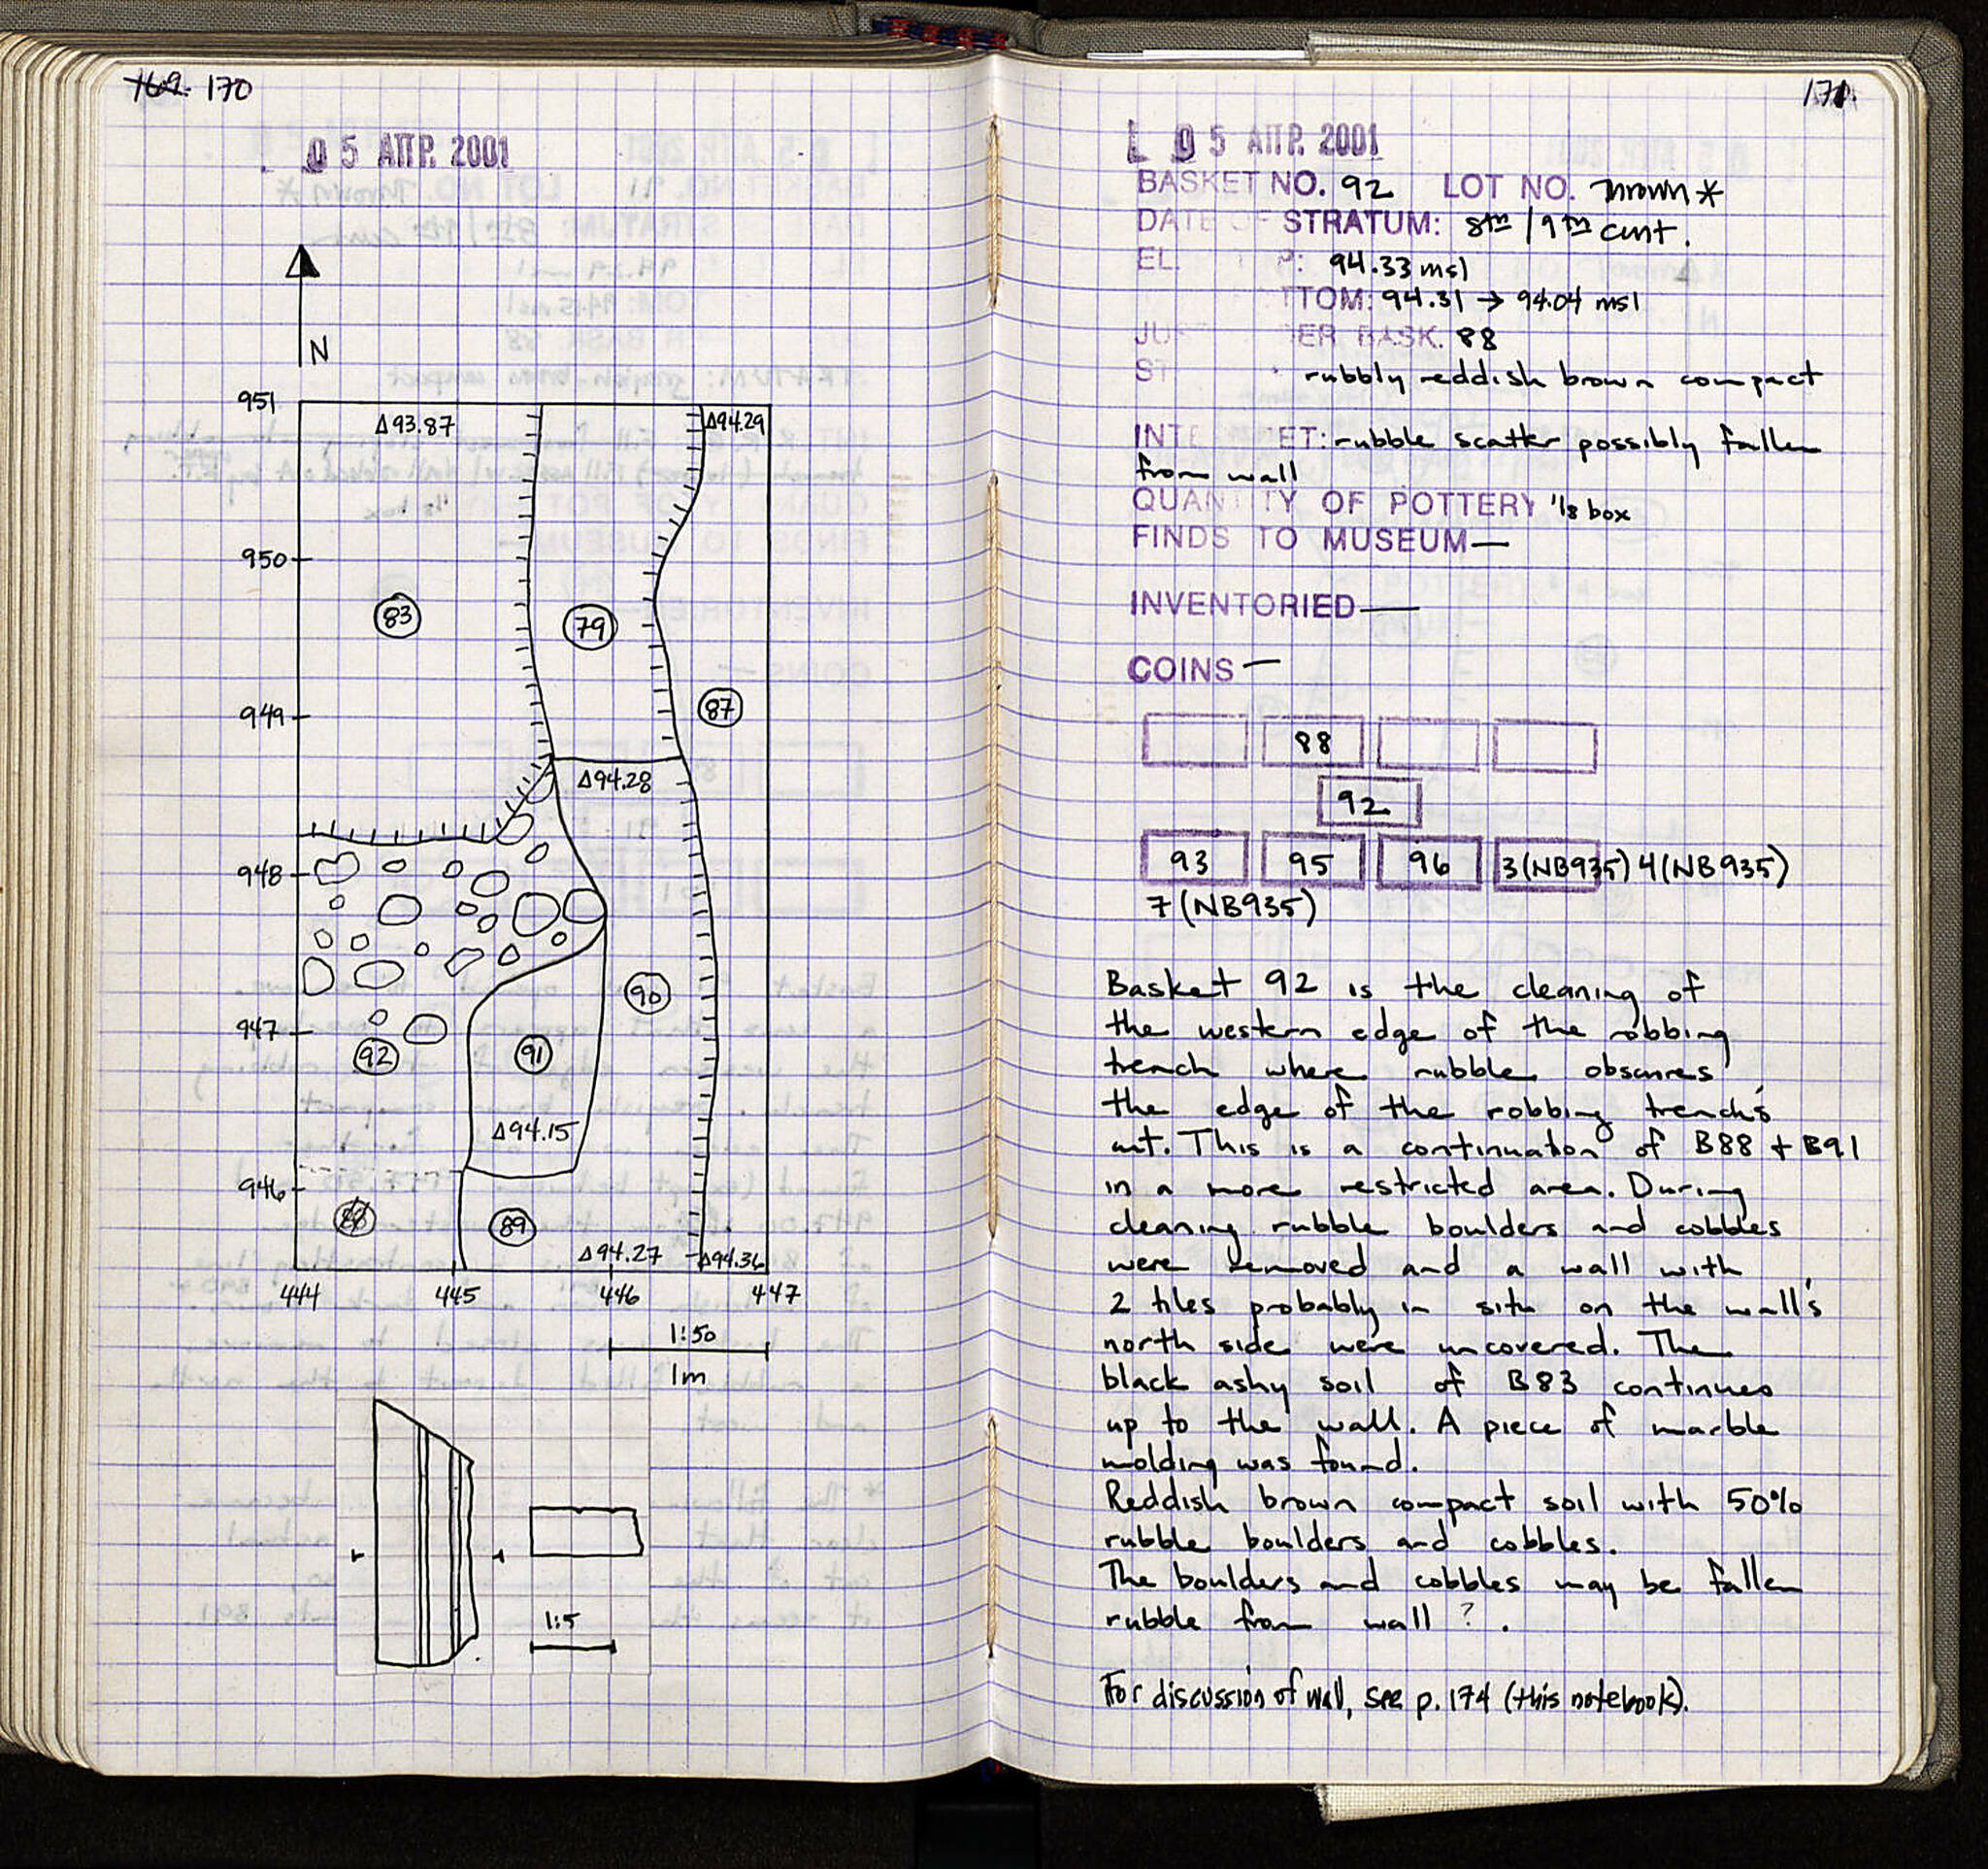 169. 170
05 ΑΠΡ. 2001
N
951
Δ93.87
Δ94.29
950
83
79
949
87
Δ94.28
948
90
947
92
91
Δ94.15
946
88
89
Δ94.27
Δ94.36
444 445 446 447
1:50
1m
1:5
171.
05 ΑΠΡ. 2001
BASKET NO. 92 LOT NO. thrown *
DATE OF STRATUM: 8th / 9th cent.
EL. P: 94.33 msl
TTOM: 94.31 → 94.04 msl
JU ER BASK. 88
ST : rubbly reddish brown compact
INTE ET: rubble scatter possibly fallen
from wall
QUANTITY OF POTTERY 1/8 box
FINDS TO MUSEUM —
INVENTORIED —
COINS —
88
92
93 95 96 3 (NB935) 4 (NB935)
7 (NB935)
Basket 92 is the cleaning of
the western edge of the robbing
trench where rubble obscures
the edge of the robbing trench's
cut. This is a continuation of B88 + B91
in a more restricted area. During
cleaning rubble boulders and cobbles
were removed and a wall with
2 tiles probably in situ on the wall's
north side were uncovered. The
black ashy soil of B83 continues
up to the wall. A piece of marble
molding was found.
Reddish brown compact soil with 50%
rubble boulders and cobbles.
The boulders and cobbles may be fallen
rubble from wall ? .
For discussion of wall, see p. 174 (this notebook).